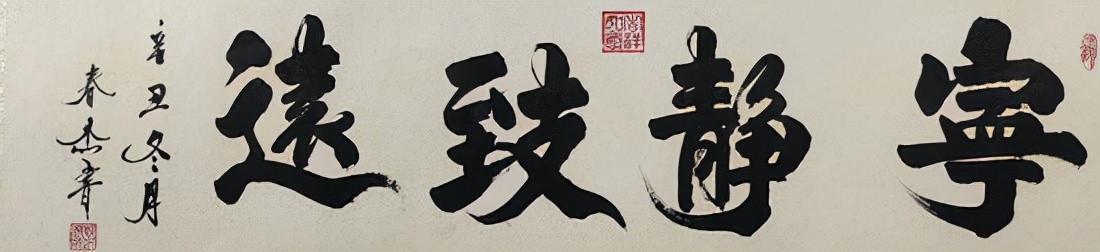 寧靜致遠
辛丑冬月
春杰書